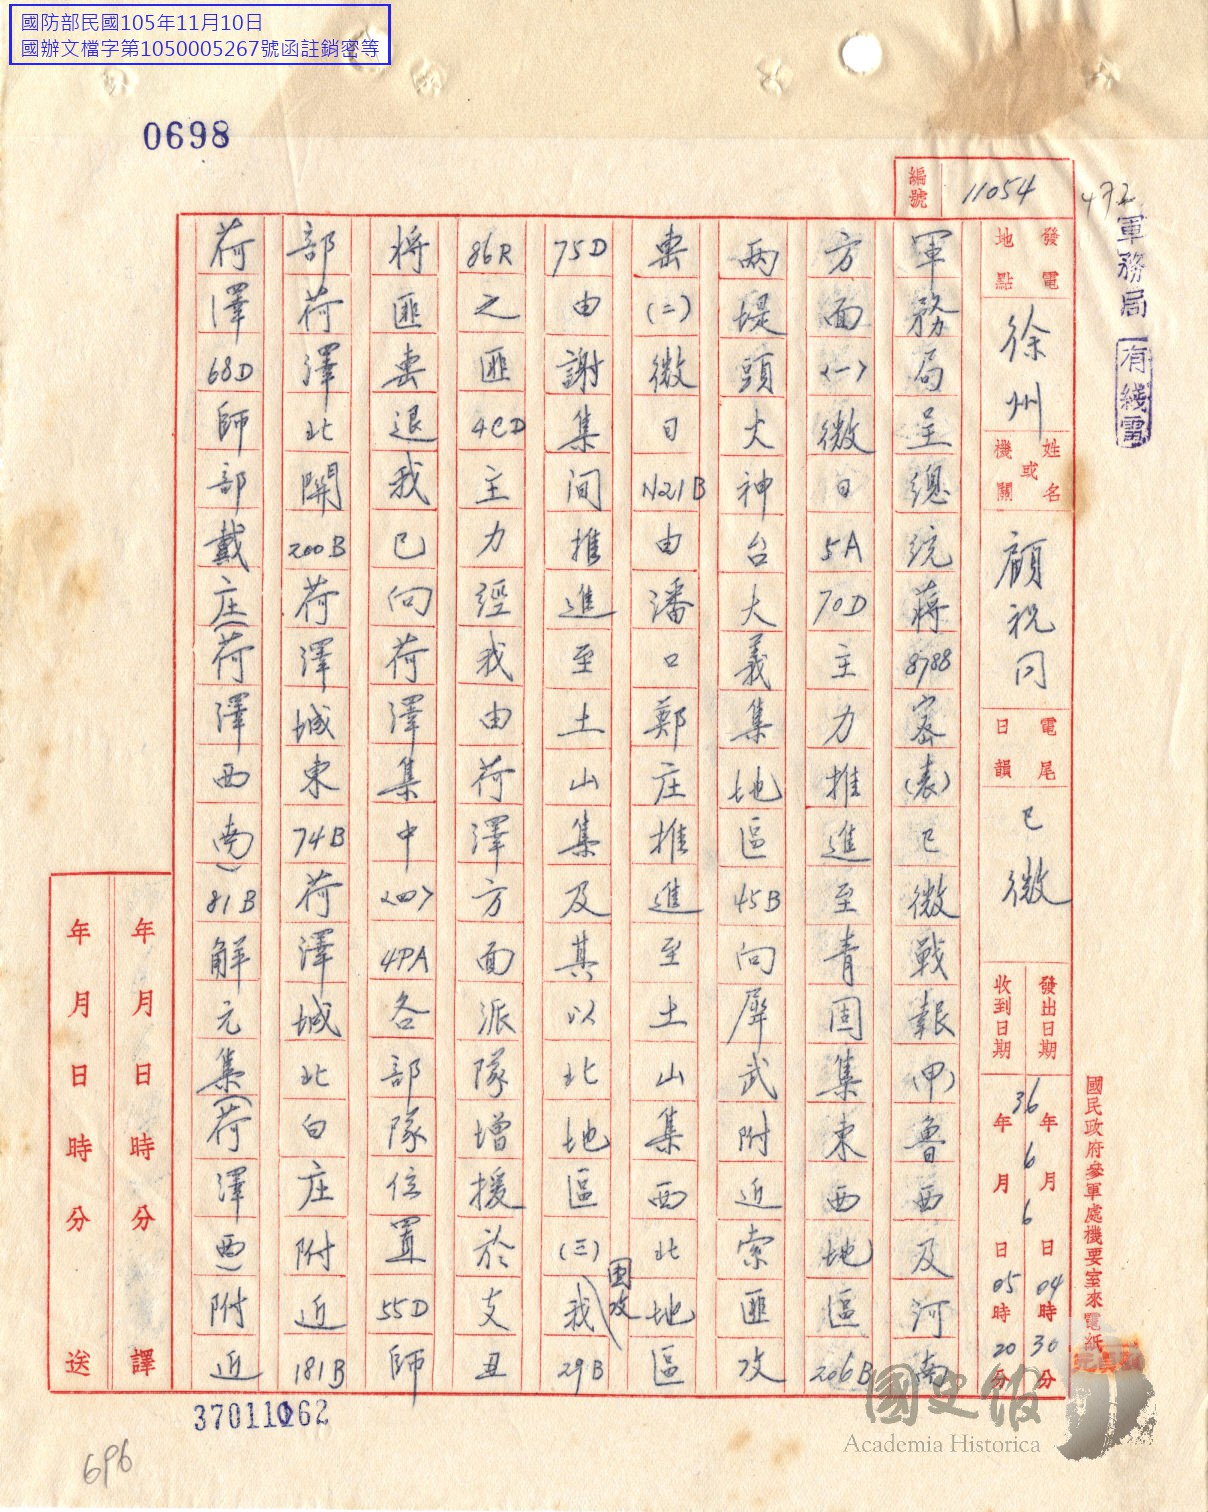 國防部民國105年11月10日
國辦文檔字第1050005267號函註銷密等
0698
472
軍務局 有綫電
編號 11054
發電地點 徐州 姓名或機關 顧祝同 電尾日韻 巳微 發出日期 36年6月6日04時30分 收到日期 年月日05時20分
國民政府參軍處機要室來電紙
軍務局呈總統蔣8788密(表)巳微戰報(甲)魯西及河南
方面(一)微日5A70D主力推進至青固集東西地區206B
兩堤頭大神台大義集地區45B向犀武附近索匪攻
擊(二)微日N21B由潘口鄭庄推進至土山集西北地區
75D由謝集間推進至土山集及其以北地區(三)圍攻我29B
86R之匪4CD主力經我由荷澤方面派隊增援於支丑
將匪擊退我已向荷澤集中(四)4PA各部隊位置55D師
部荷澤北關200B荷澤城東74B荷澤城北白庄附近181B
荷澤68D師部戴庄(荷澤西南)81B解元集(荷澤西)附近
年月日時分譯
年月日時分送
37011062
696
國史館
Academia Historica